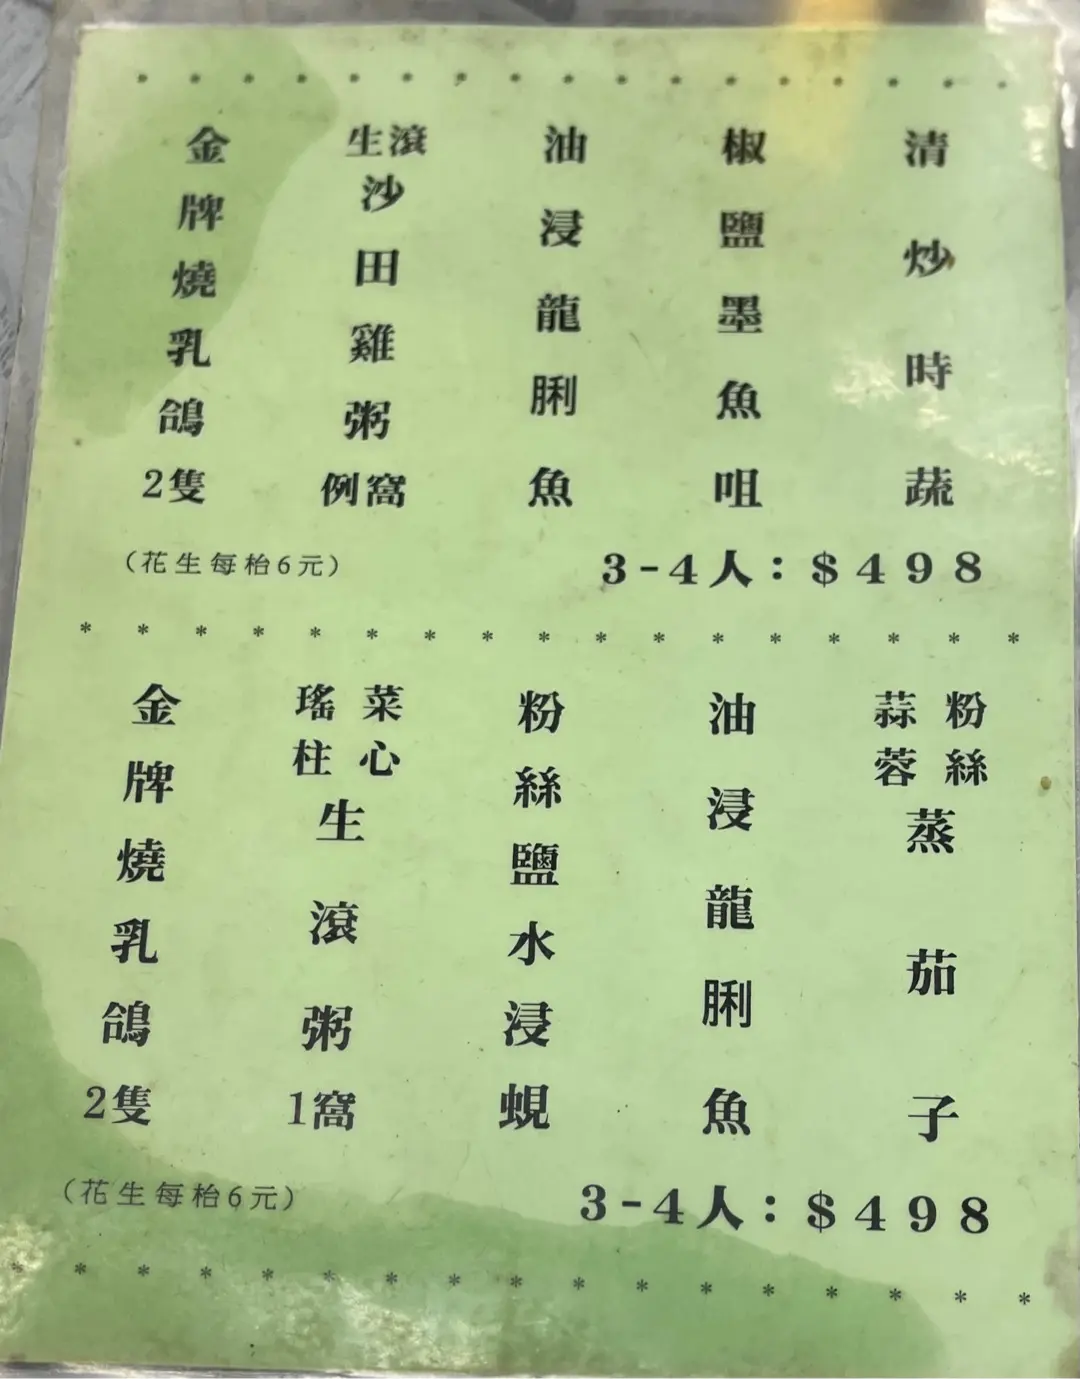 金牌燒乳鴿2隻
生滾沙田雞粥例窩
油浸龍脷魚
椒鹽墨魚咀
清炒時蔬
（花生每枱6元）
3-4人：$498
金牌燒乳鴿2隻
瑤柱菜心生滾粥1窩
粉絲鹽水浸蜆
油浸龍脷魚
蒜蓉粉絲蒸茄子
（花生每枱6元）
3-4人：$498